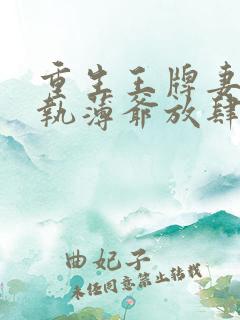 重生王牌妻
執薄爺放肆
曲妃子
未经同意禁止转载